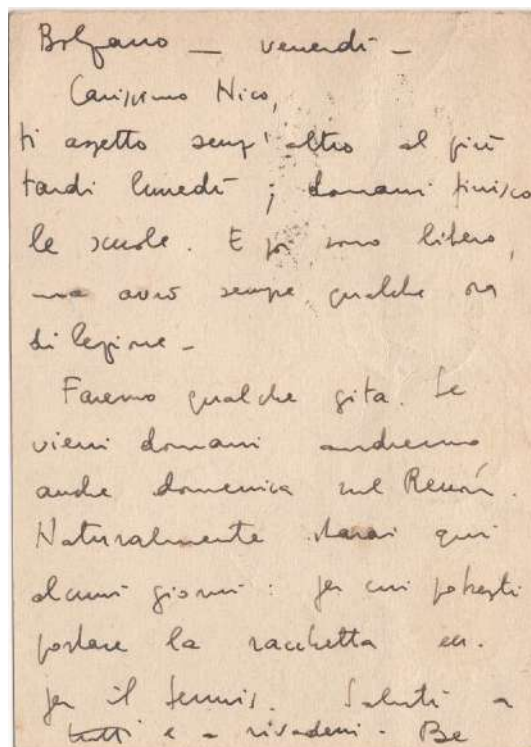 Bolzano — venerdì —
Carissimo Nico,
ti aspetto senz'altro al più
tardi lunedì ; domani finisco
le scuole. E poi sono libero,
ma avrò sempre qualche ora
di lezione —
Faremo qualche gita. Se
vieni domani andremo
anche domenica sul Renon.
Naturalmente starai qui
alcuni giorni : per cui potresti
portare la racchetta ecc.
per il tennis. Saluti a
tutti e a rivederci. Be